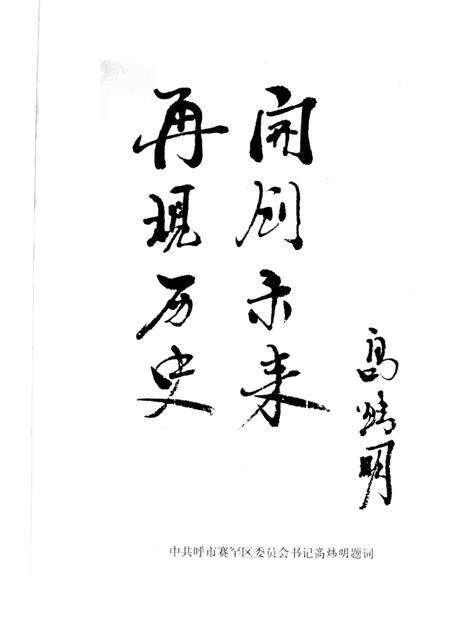 再现历史
開创未来
高炜明
中共呼市赛罕区委员会书记高炜明题词